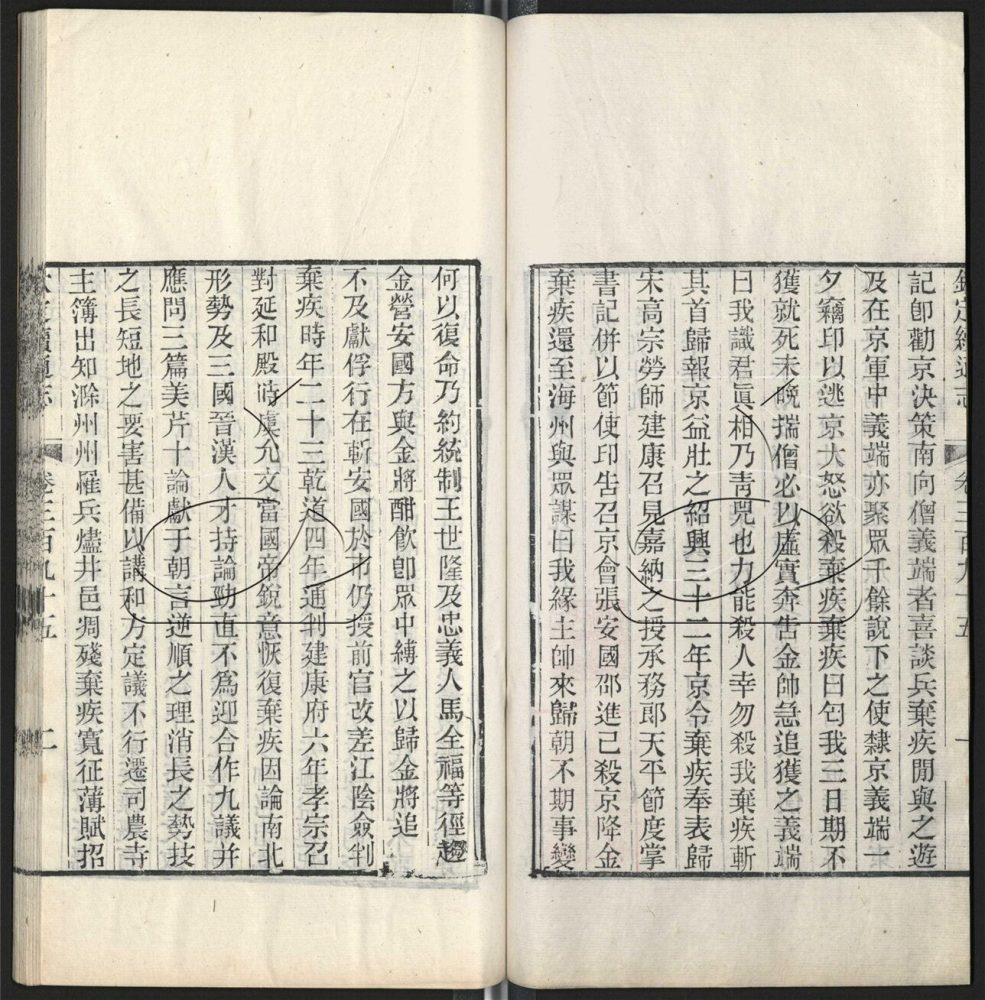 欽定續通志 卷三百九十五 一
記卽勸京決策南向僧義端者喜談兵棄疾閒與之遊
及在京軍中義端亦聚眾千餘說下之使隸京義端一
夕竊印以逃京大怒欲殺棄疾棄疾曰匄我三日期不
獲就死未晚揣僧必以虛實奔告金帥急追獲之義端
曰我識君眞相乃靑兕也力能殺人幸勿殺我棄疾斬
其首歸報京益壯之紹興三十二年京令棄疾奉表歸
宋高宗勞師建康召見嘉納之授承務郞天平節度掌
書記併以節使印告召京會張安國邵進已殺京降金
棄疾還至海州與眾謀曰我緣主帥來歸朝不期事變
何以復命乃約統制王世隆及忠義人馬全福等徑趨
金營安國方與金將酣飮卽眾中縛之以歸金將追
不及獻俘行在斬安國於市仍授前官改差江陰僉判
棄疾時年二十三乾道四年通判建康府六年孝宗召
對延和殿時虞允文當國帝銳意恢復棄疾因論南北
形勢及三國晉漢人才持論勁直不爲迎合作九議并
應問三篇美芹十論獻于朝言逆順之理消長之勢技
之長短地之要害甚備以講和方定議不行遷司農寺
主簿出知滁州州罹兵燼井邑凋殘棄疾寬征薄賦招
卷三百九十五 二